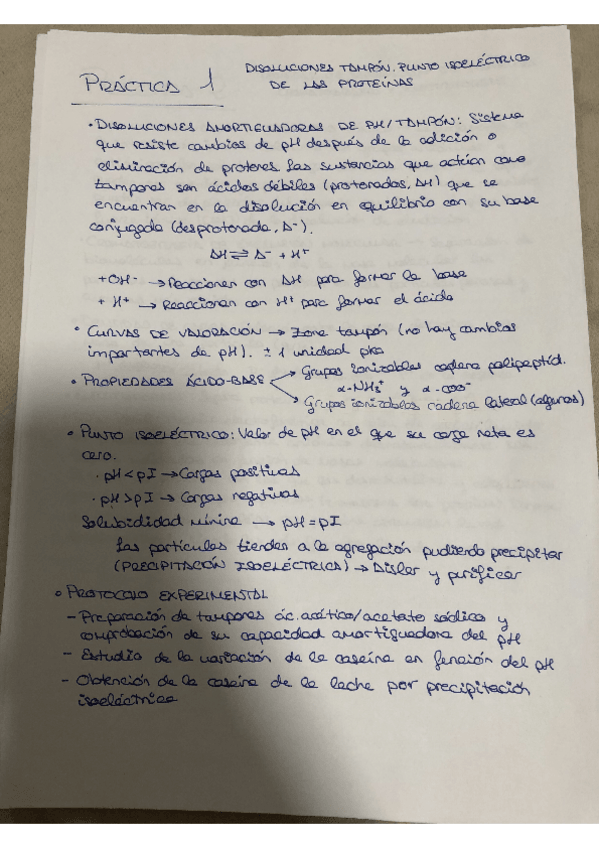 PRÁCTICA 1
DISOLUCIONES TAMPÓN. PUNTO ISOELÉCTRICO
DE LAS PROTEÍNAS
• DISOLUCIONES AMORTIGUADORAS DE PH/TAMPÓN: Sistema
que resiste cambios de pH después de la adición o
eliminación de protones. Las sustancias que actúan como
tampones son ácidos débiles (protonados, AH) que se
encuentran en la disolución en equilibrio con su base
conjugada (desprotonada, A⁻).
AH ⇌ A⁻ + H⁺
+ OH⁻ → Reaccionan con AH para formar la base
+ H⁺ → Reaccionan con H⁺ para formar el ácido
• CURVAS DE VALORACIÓN → Zona tampón (no hay cambios
importantes de pH). ± 1 unidad pka
• PROPIEDADES ÁCIDO-BASE
Grupos ionizables cadena polipeptíd.
α-NH₃⁺ y α-COO⁻
Grupos ionizables cadena lateral (algunos)
• PUNTO ISOELÉCTRICO: Valor de pH en el que su carga neta es
cero.
· pH < pI → Cargas positivas
· pH > pI → Cargas negativas
Solubididad mínima → pH = pI
Las partículas tienden a la agregación pudiendo precipitar
(PRECIPITACIÓN ISOELÉCTRICA) → Aislar y purificar
• PROTOCOLO EXPERIMENTAL
- Preparación de tampones ác. acético/acetato sódico y
comprobación de su capacidad amortiguadora del pH
- Estudio de la variación de la caseína en función del pH
- Obtención de la caseína de la leche por precipitación
isoeléctrica